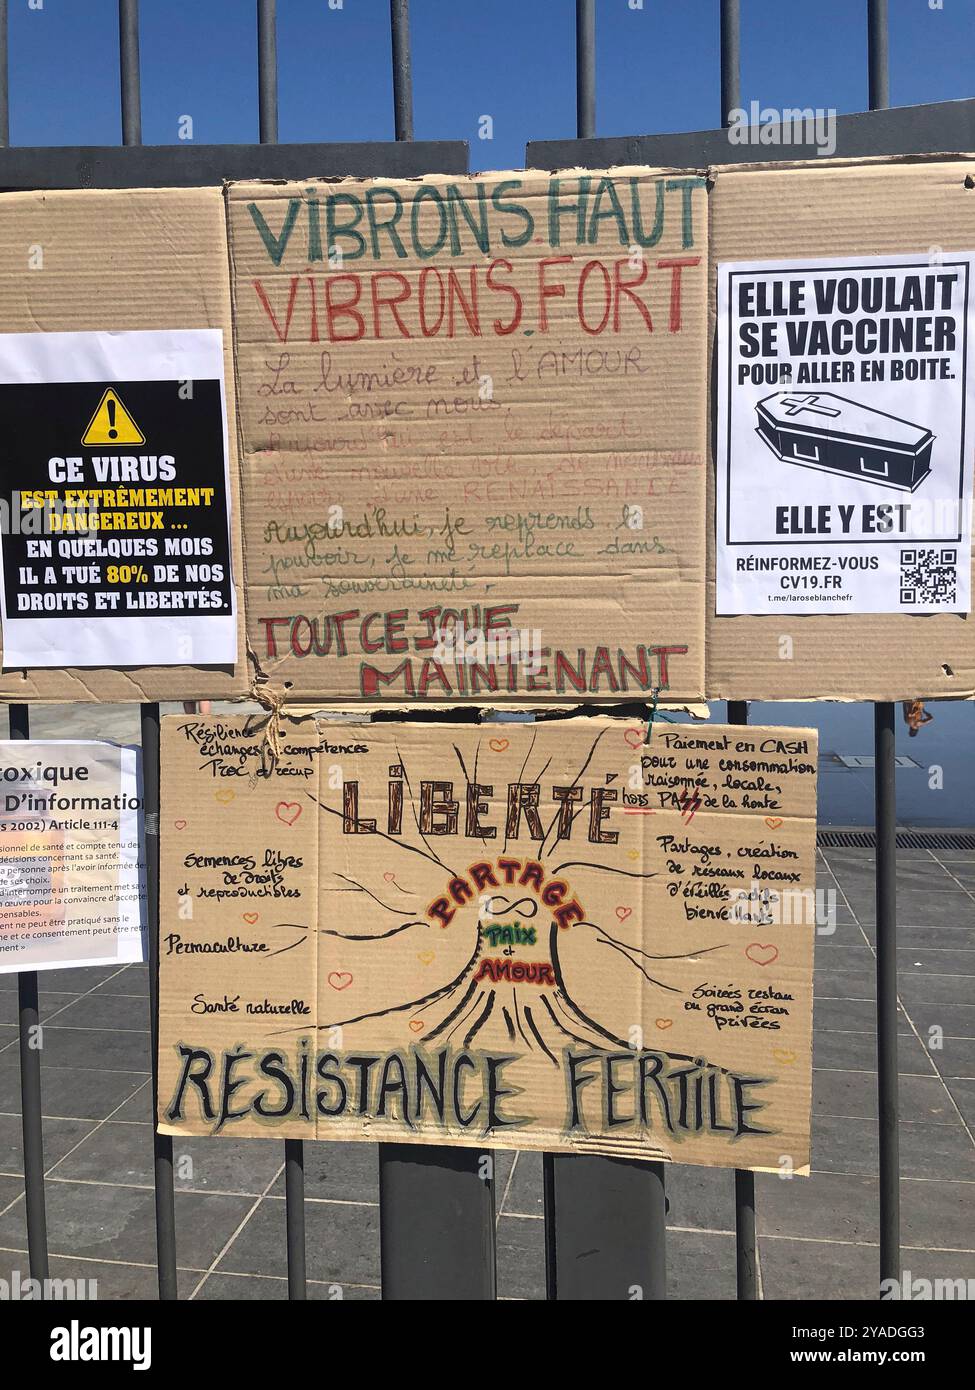 VIBRONS.HAUT
VIBRONS.FORT
La lumière et l'AMOUR
sont avec nous,
Aujourd'hui est le départ
d'une nouvelle
Aujourd'hui, je reprends le
pouvoir, je me replace dans
ma souveraineté.
TOUT CE JOUE
MAINTENANT
CE VIRUS
EST EXTRÊMEMENT
DANGEREUX ...
EN QUELQUES MOIS
IL A TUÉ 80% DE NOS
DROITS ET LIBERTÉS.
ELLE VOULAIT
SE VACCINER
POUR ALLER EN BOITE.
ELLE Y EST
RÉINFORMEZ-VOUS
CV19.FR
t.me/laroseblanchefr
toxique
D'information
2002) Article 111-4
sionnel de santé et compte tenu des
décisions concernant sa santé.
a personne après l'avoir informée de
de ses choix.
d'interrompre un traitement met sa v
en œuvre pour la convaincre d'accepte
spensables.
ent ne peut être pratiqué sans le
ne et ce consentement peut être retir
ment »
Résilience
échanges de compétences
Troc et récup
Semences libres
de droits
et reproductibles
Permaculture
Santé naturelle
LIBERTÉ
PARTAGE
PAIX
et
AMOUR
Paiement en CASH
pour une consommation
raisonnée, locale,
hors PASS de la honte
Partages, création
de réseaux locaux
d'éveillés actifs
bienveillants
Soirées restau
ou grand écran
privées
RÉSISTANCE FERTILE
alamy
Image ID: 2YADGG3
www.alamy.com